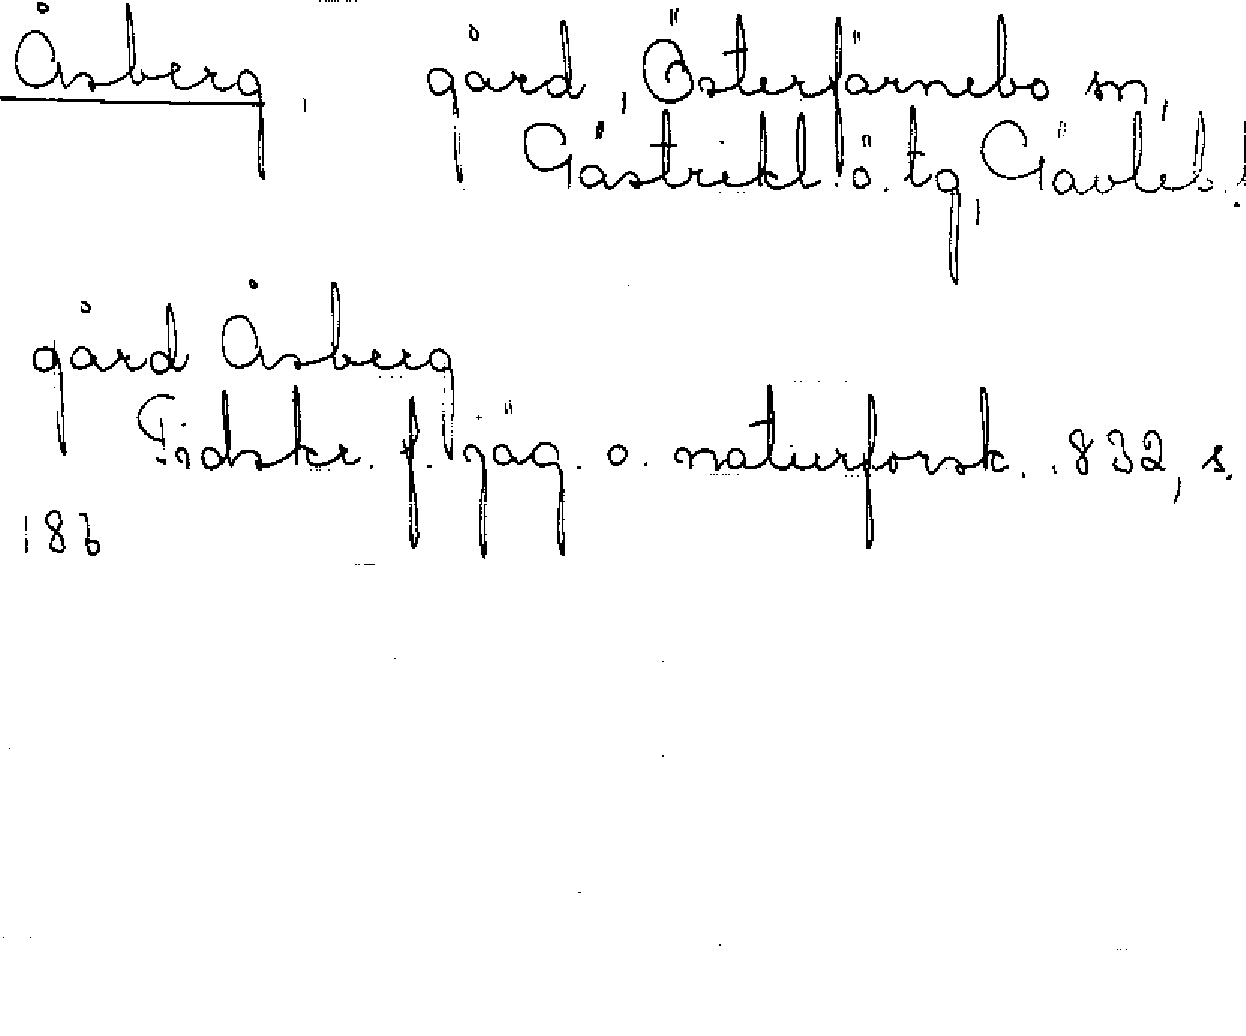 Åsberg, gård, Österfärnebo sn,
Gästrikl. ö. tg, Gävleb. l
gård Åsberg
Tidskr. f. jäg. o. naturforsk. 1832, s.
186